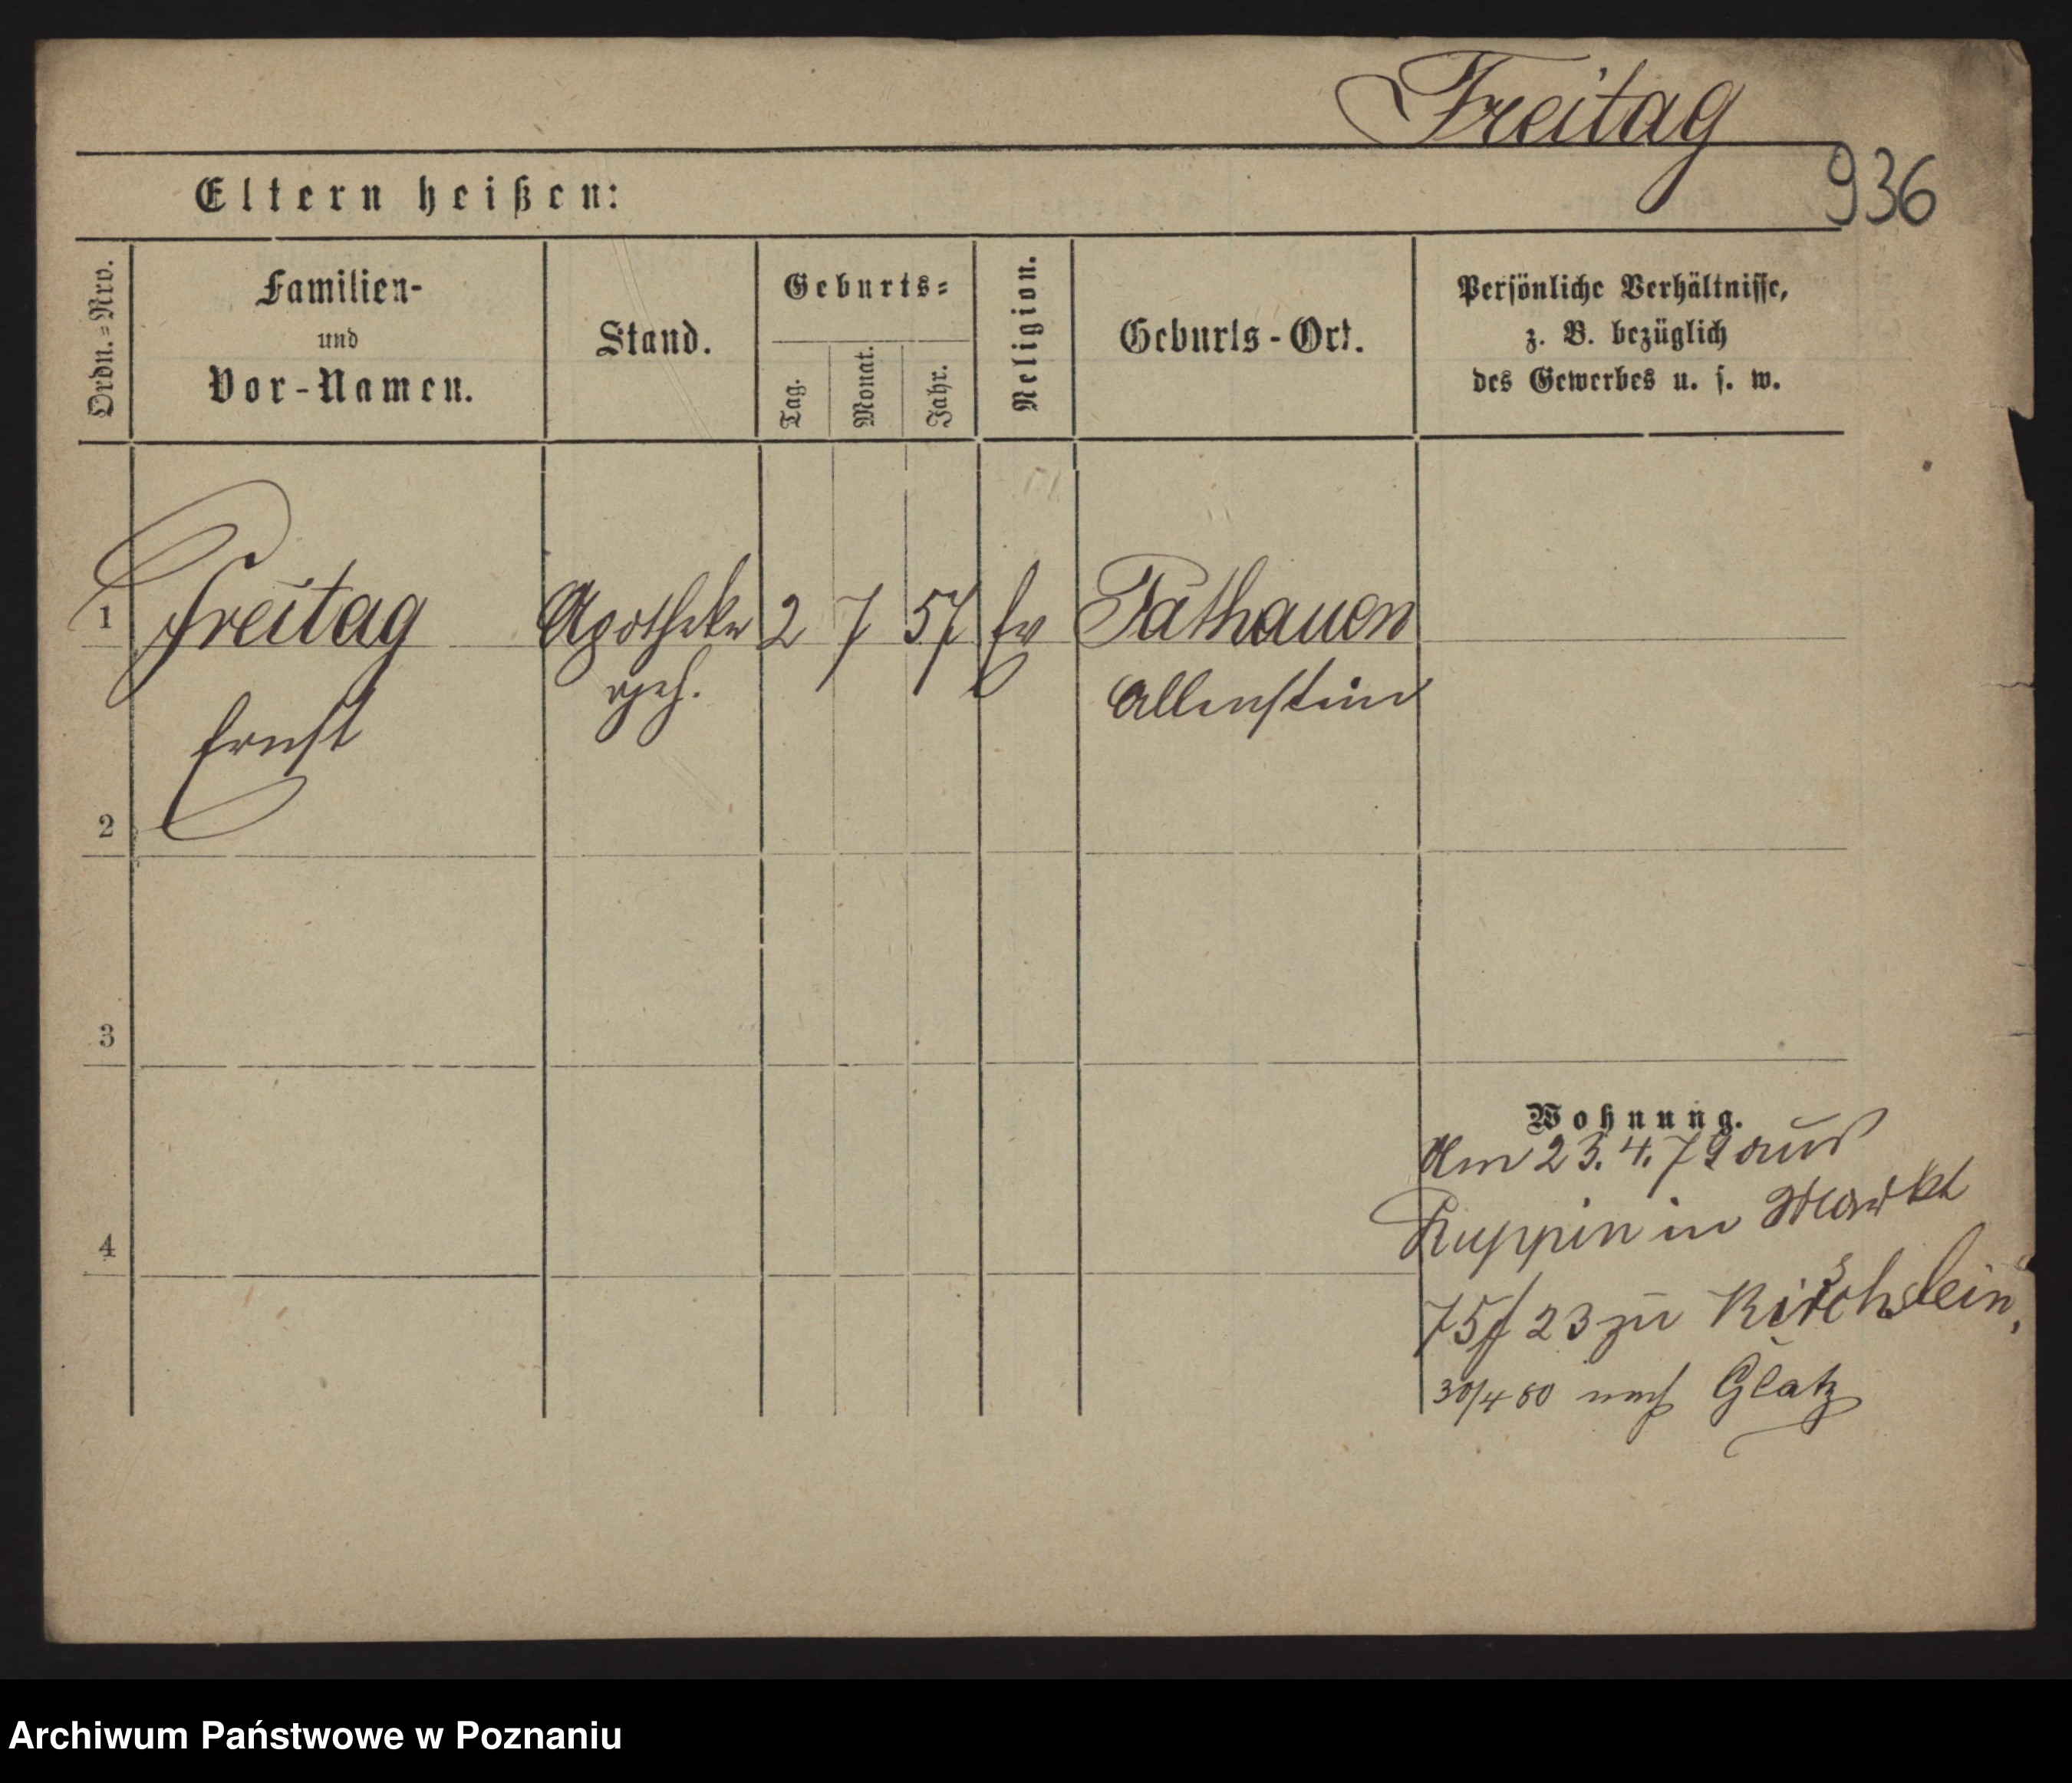 Freitag
936
Eltern heißen:
Ordn.=Nro.
Familien-
und
Vor-Namen.
Stand.
Geburts=
Tag.
Monat.
Jahr.
Religion.
Geburts-Ort.
Persönliche Verhältnisse,
z. B. bezüglich
des Gewerbes u. s. w.
1 Freitag Apotheker 2 7 57 Ev Pathauen
geh. Allenstein
Ernst
2
3
4
Wohnung.
Am 23.4.79 aus
Ruppin in Markt
75/23 zu Kirschstein,
30/4 80 nach Glatz
Archiwum Państwowe w Poznaniu